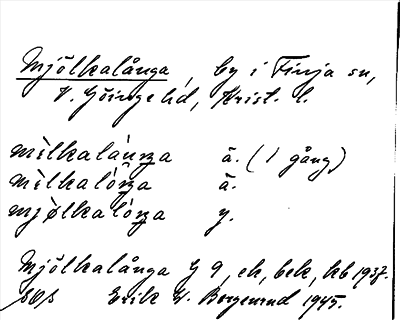 Mjölkalånga, by i Finja sn,
V. Göinge hd, Krist. l.
mìlkalán̥ga ä. (1 gång)
mìlkalóŋga ä.
mjòlkalóŋga y.
Mjölkalånga G 9, ek, bek, hb 1937.
Erik W. Bergenrud 1945.